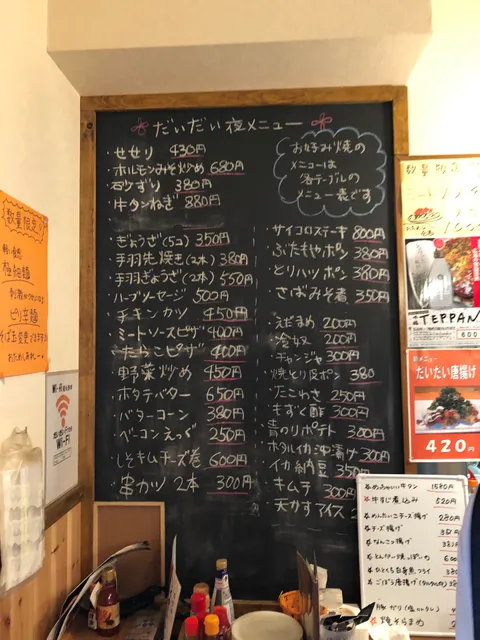 だいだい夜メニュー
・せせり 430円
・ホルモンみそ炒め 680円
・砂ずり 380円
・牛タンねぎ 880円
お好み焼の
メニューは
各テーブルの
メニュー表です
・ぎょうざ(5コ) 350円
・手羽先焼き(2本) 380円
・手羽ぎょうざ(2本) 550円
・ハーブソーセージ 500円
・チキンカツ 450円
・ミートソースピザ 400円
・たらこピザ 400円
・野菜炒め 450円
・ホタテバター 650円
・バターコーン 380円
・ベーコンえっぐ 250円
・しそキムチーズ巻 600円
・串カツ 2本 300円
・サイコロステーキ 800円
・ぶたもやポン 380円
・とりハツポン 380円
・さばみそ煮 350円
・えだまめ 200円
・冷奴 200円
・チャンジャ 300円
・焼とり皮ポン 380
・たこわさ 250円
・もずく酢 300円
・青のりポテト 300円
・ホタルイカ沖漬け 300円
・イカ納豆 350円
・キムチ 300円
・天かすアイス
数量限定
極細麺
ピリ辛麺
Wi-Fi
数量限定
TEPPAN
新メニュー
だいだい唐揚げ
420円
牛すじ煮込み 520円
めんたいこチーズ揚げ 280円
チーズ揚げ
なんこつ揚げ
ごぼう唐揚げ
焼そらまめ